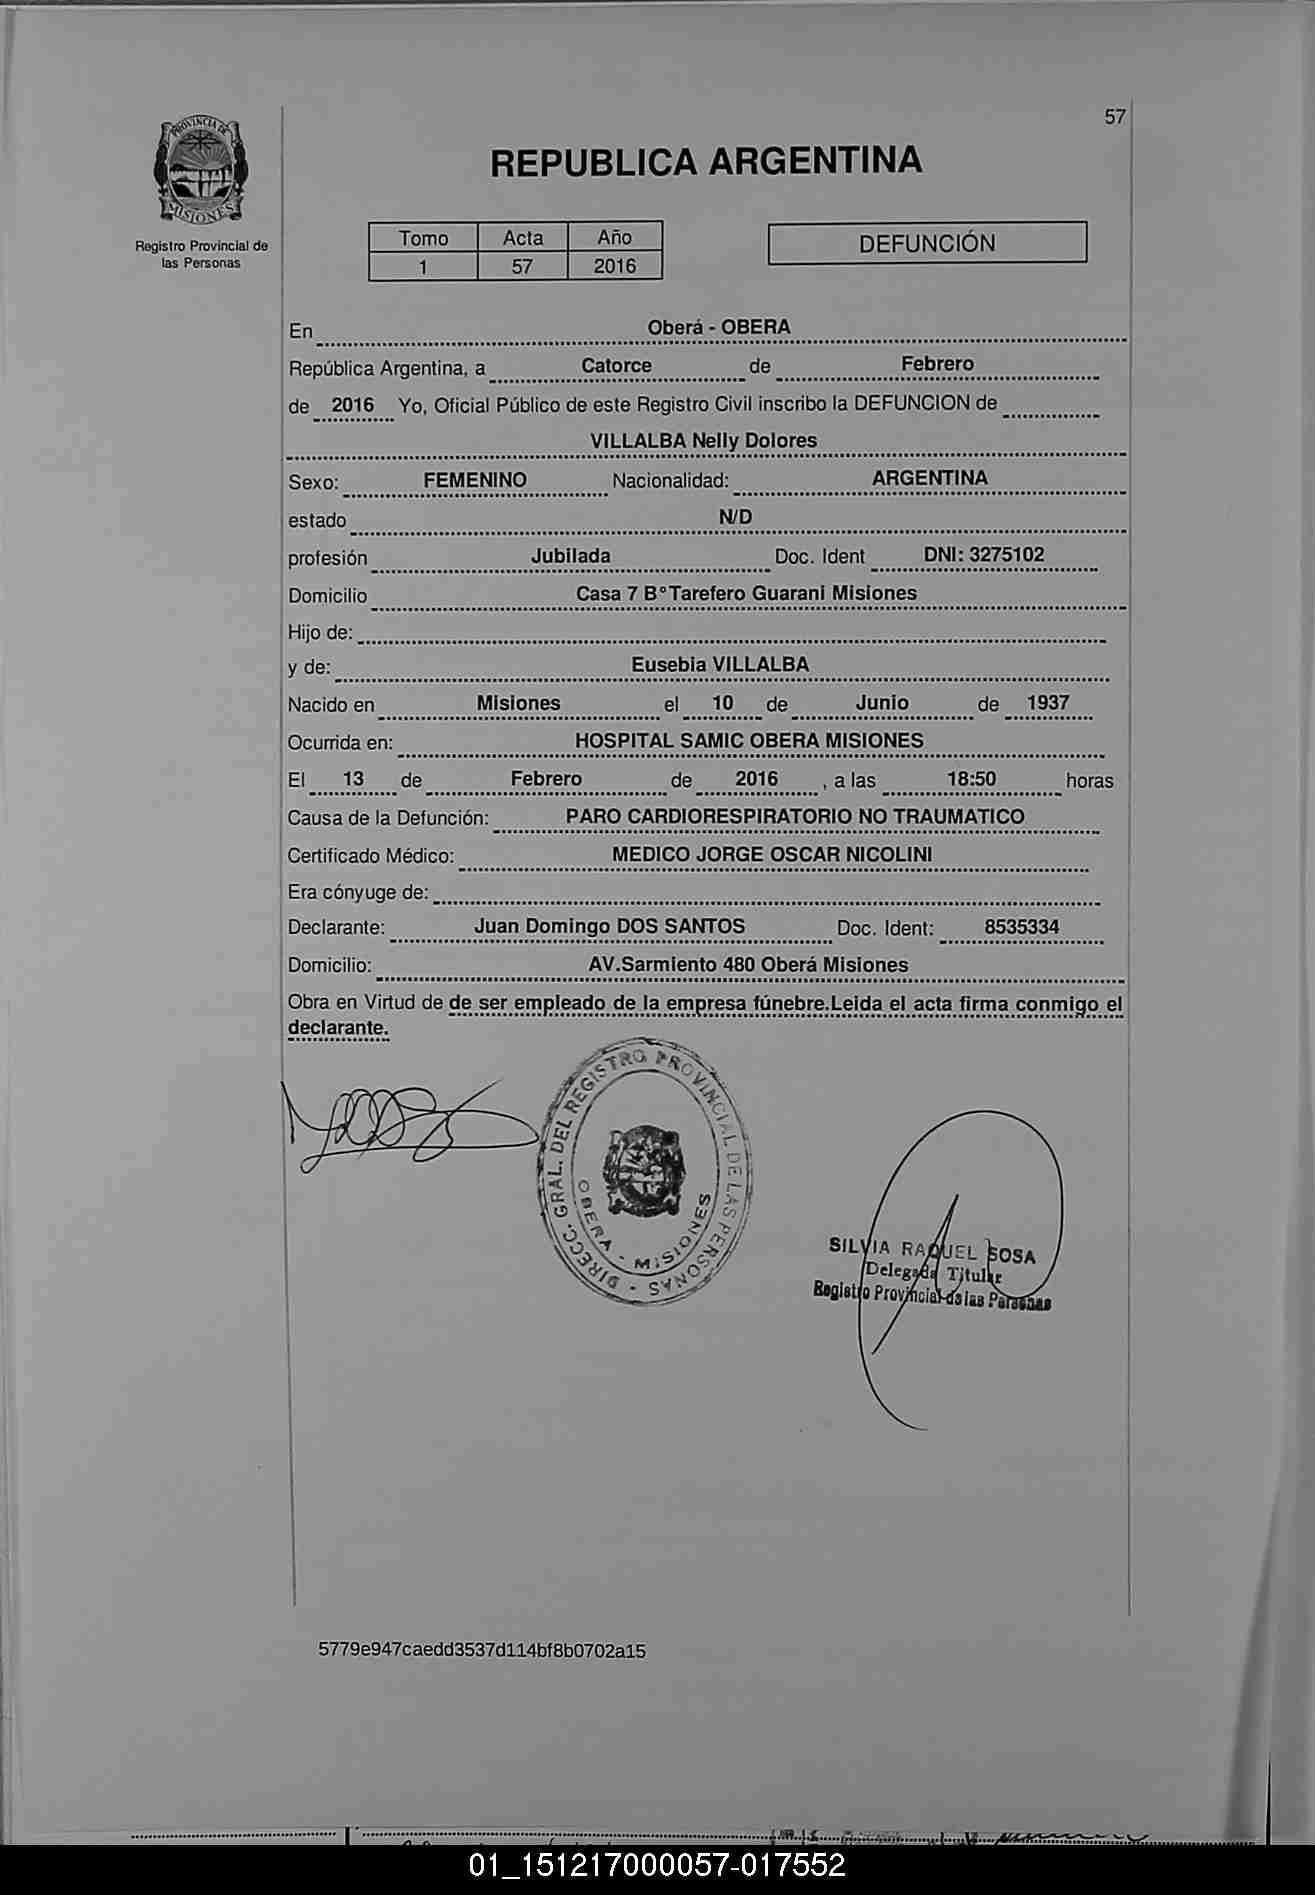 57
PROVINCIA DE
MISIONES
Registro Provincial de
las Personas
REPUBLICA ARGENTINA
Tomo Acta Año
1 57 2016
DEFUNCIÓN
En Oberá - OBERA
República Argentina, a Catorce de Febrero
de 2016 Yo, Oficial Público de este Registro Civil inscribo la DEFUNCION de
VILLALBA Nelly Dolores
Sexo: FEMENINO Nacionalidad: ARGENTINA
estado N/D
profesión Jubilada Doc. Ident DNI: 3275102
Domicilio Casa 7 B° Tarefero Guarani Misiones
Hijo de:
y de: Eusebia VILLALBA
Nacido en Misiones el 10 de Junio de 1937
Ocurrida en: HOSPITAL SAMIC OBERA MISIONES
El 13 de Febrero de 2016 , a las 18:50 horas
Causa de la Defunción: PARO CARDIORESPIRATORIO NO TRAUMATICO
Certificado Médico: MEDICO JORGE OSCAR NICOLINI
Era cónyuge de:
Declarante: Juan Domingo DOS SANTOS Doc. Ident: 8535334
Domicilio: AV.Sarmiento 480 Oberá Misiones
Obra en Virtud de de ser empleado de la empresa fúnebre.Leida el acta firma conmigo el
declarante.
DIRECC. GRAL. DEL REGISTRO PROVINCIAL DE LAS PERSONAS -
OBERA - MISIONES
SILVIA RAQUEL SOSA
Delegada Titular
Registro Provincial de las Personas
5779e947caedd3537d114bf8b0702a15
01_151217000057-017552